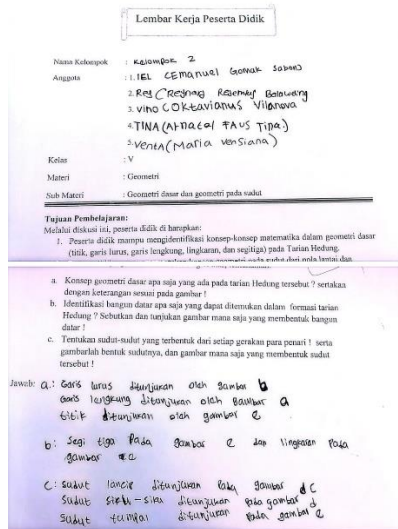 Lembar Kerja Peserta Didik
Nama Kelompok : Kelompok 2
Anggota : 1. IEL (Emanuel Gomuk Sabon)
2. Res (
3. Vino (Oktavianus Vilanova
4. TINA (Arnatal FAUS Tina.)
5. Venta (Maria Vensiana)
Kelas : V
Materi : Geometri
Sub Materi : Geometri dasar dan geometri pada sudut
Tujuan Pembelajaran:
Melalui diskusi ini, peserta didik di harapkan:
1. Peserta didik mampu mengidentifikasi konsep-konsep matematika dalam geometri dasar
(titik, garis lurus, garis lengkung, lingkaran, dan segitiga) pada Tarian Hedung.
a. Konsep geometri dasar apa saja yang ada pada tarian Hedung tersebut ? sertakan
dengan keterangan sesuai pada gambar !
b. Identifikasi bangun datar apa saja yang dapat ditemukan dalam formasi tarian
Hedung ? Sebutkan dan tunjukan gambar mana saja yang membentuk bangun
datar !
c. Tentukan sudut-sudut yang terbentuk dari setiap gerakan para penari ! serta
gambarlah bentuk sudutnya, dan gambar mana saja yang membentuk sudut
tersebut !
Jawab: a. : Garis lurus ditunjukan oleh gambar b
Garis lengkung ditunjukan oleh gambar a
titik ditunjukan olah gambar e
b : Segi tiga Pada gambar e dan lingkaran Pada
gambar e
C : sudut lancip ditunjukan Pada gambar d C
Sudut siku-siku ditunjukan Pada gambar d
Sudut tumpul ditunjukan Pada gambar e